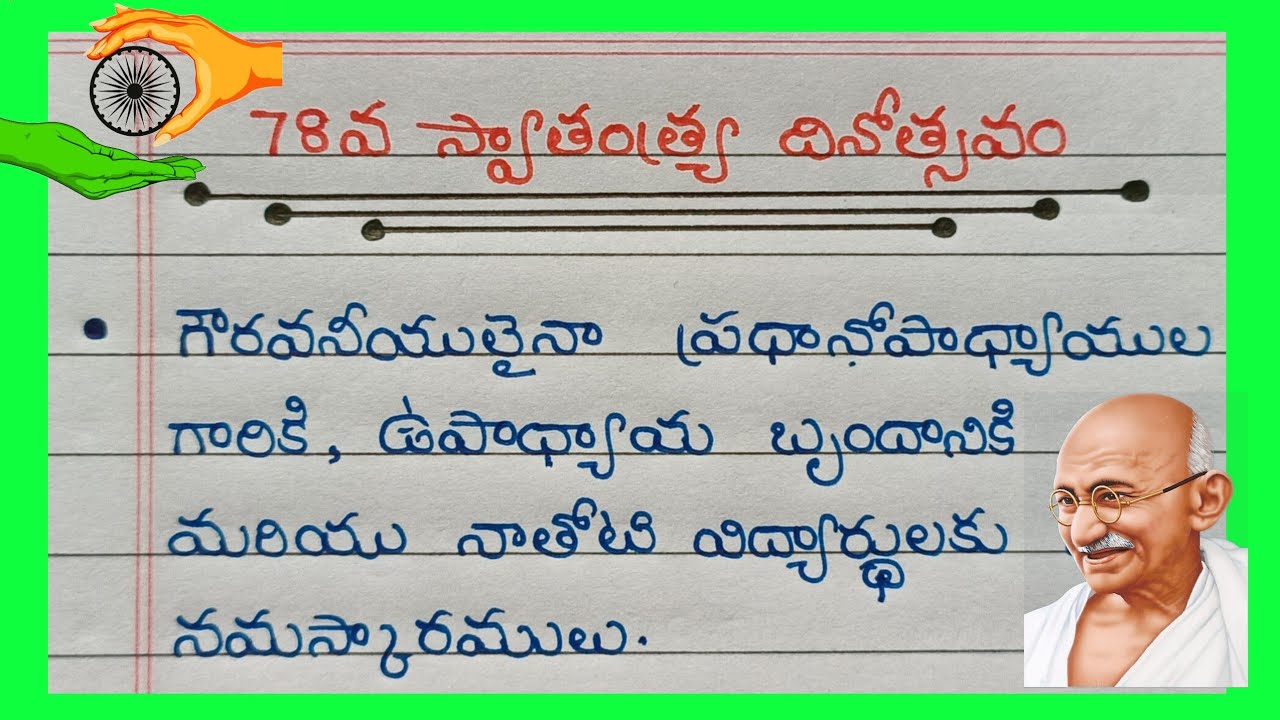 78వ స్వాతంత్ర్య దినోత్సవం
• గౌరవనీయులైనా ప్రధానోపాధ్యాయుల
గారికి, ఉపాధ్యాయ బృందానికి
మరియు నాతోటి విద్యార్థులకు
నమస్కారములు.